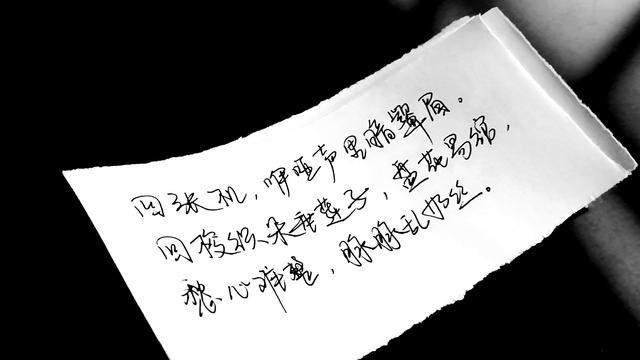 四张机，咿哑声里暗颦眉。
回梭织朵垂莲子，盘花易绾，
愁心难整，脉脉乱如丝。